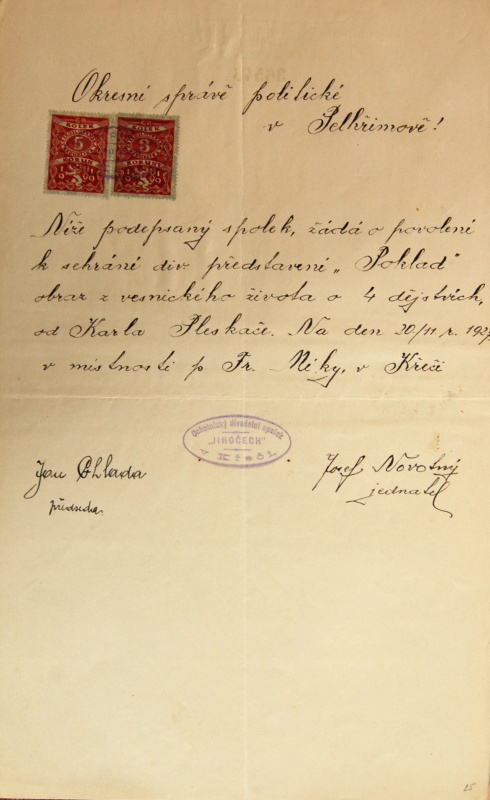 Okresní správě politické
v Pelhřimově!
KOLEK
5
KORUN
1919
KOLEK
3
KORUNY
1919
Níže podepsaný spolek, žádá o povolení
k sehrání div. představení „Poklad"
obraz z vesnického života o 4 dějstvích,
od Karla Pleskače. Na den 20/11. r. 1927
v místnosti p. Fr. Niky, v Křeči
Ochotnický divadelní spolek
„JIHOČECH"
v Křeči.
Jan Chlada
předseda.
Josef Novotný
jednatel
25